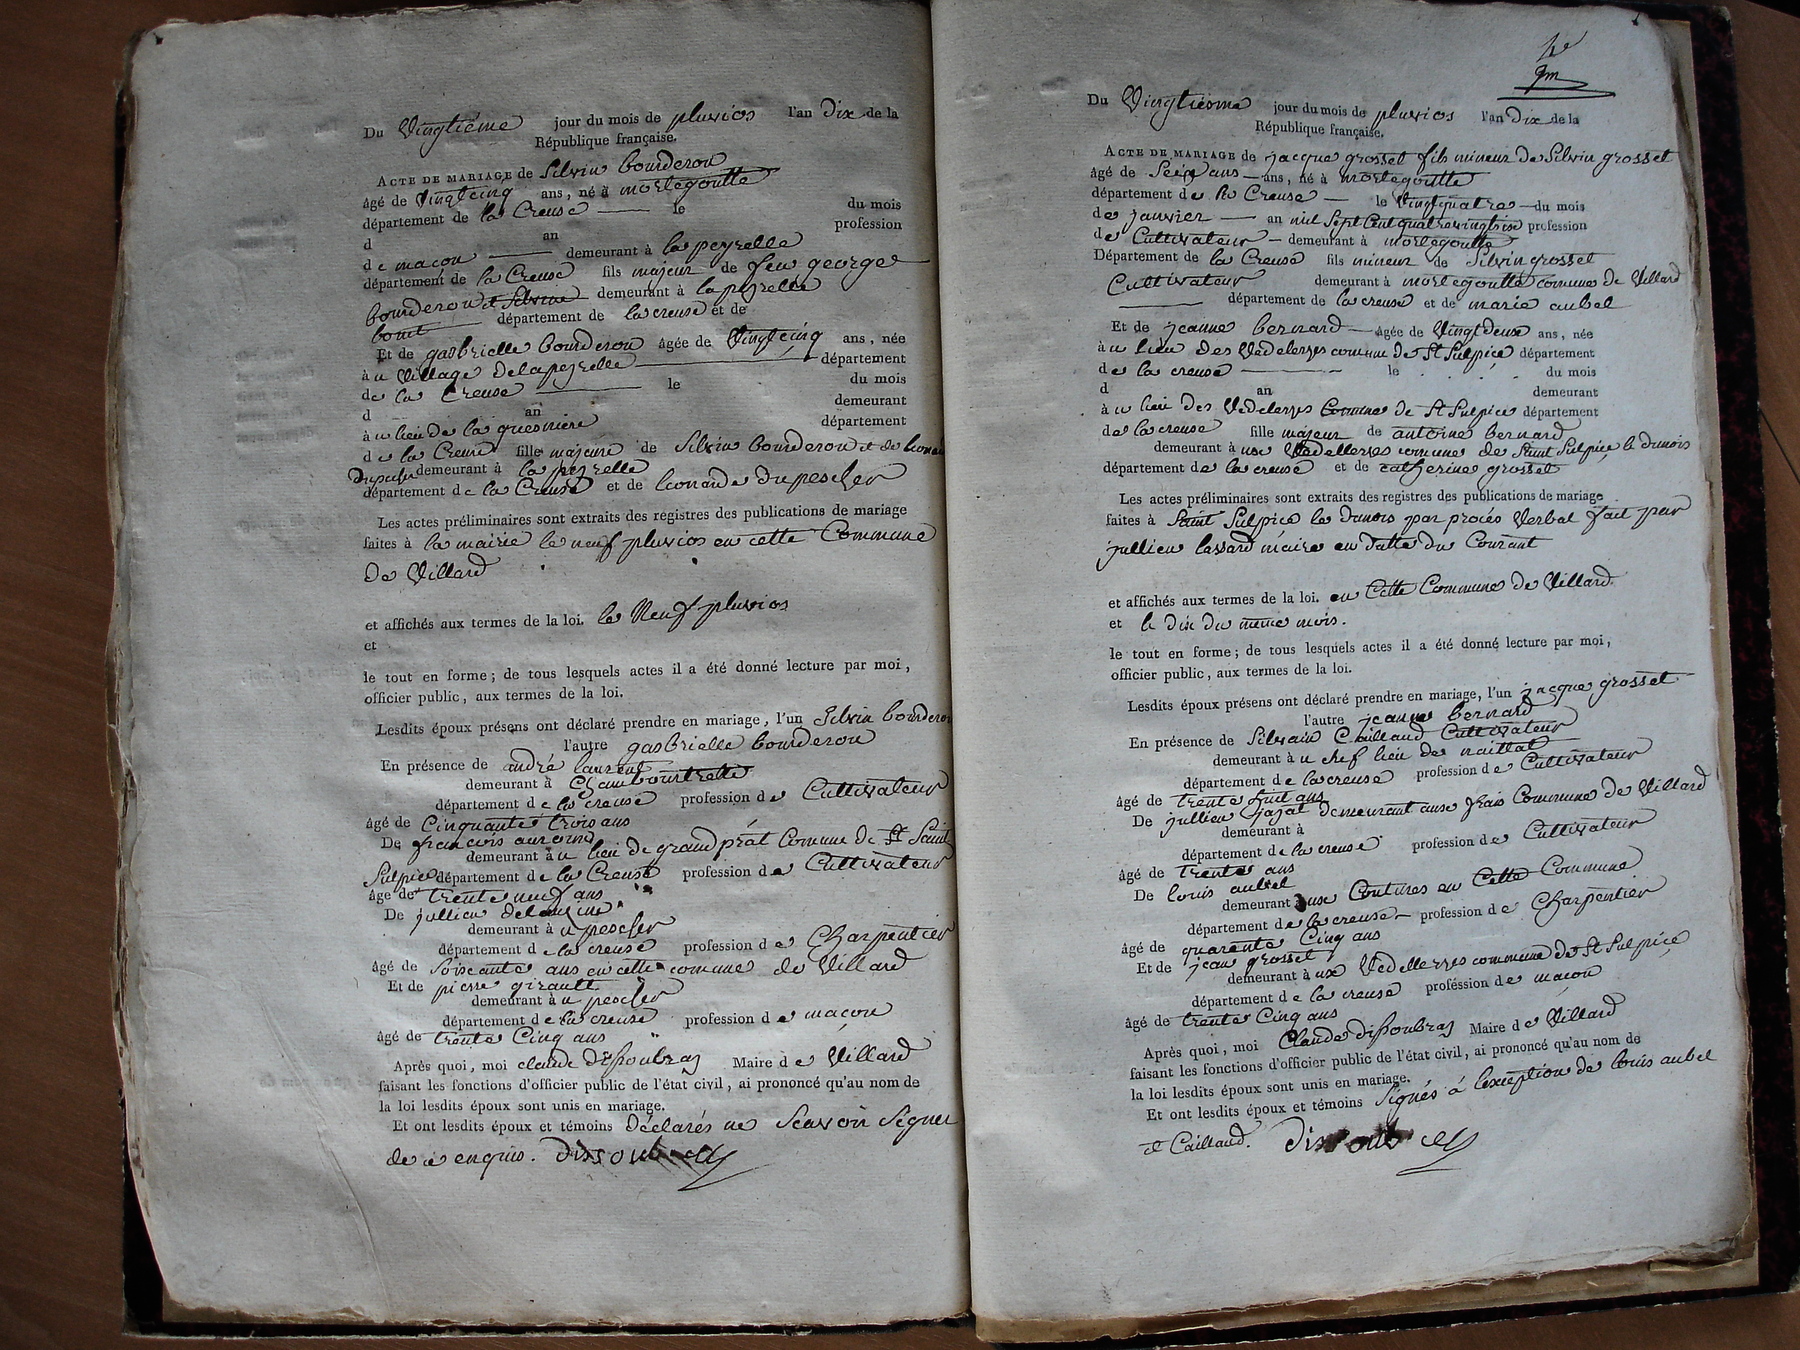 Du Vingtiéme jour du mois de pluvios l'an Dix de la
République française.
ACTE DE MARIAGE de Silvin bourderon
âgé de Vingtcinq ans, né à mortegoutte
département de la Creuse le du mois
d an profession
de macon demeurant à lapeyrelle
département de la Creuse fils majeur de feu george
bourderon et Silvine demeurant à lapeyrelle
département de la creuse et de
Et de gasbrielle bourderon âgée de Vingtcinq ans, née
à u Village delapeyrelle département
de la Creuse le du mois
d an demeurant
à u lieu de la département
de la Creuse fille majeure de Silvin bourderon et de
demeurant à la peyrelle
département de la Creuse et de leonarde dupescher
Les actes préliminaires sont extraits des registres des publications de mariage
faites à la mairie le neuf pluvios en cette Commune
De Villard
et affichés aux termes de la loi. le Neuf pluvios
et
le tout en forme; de tous lesquels actes il a été donné lecture par moi,
officier public, aux termes de la loi.
Lesdits époux présens ont déclaré prendre en mariage, l'un Silvin bourderon
l'autre gasbrielle bourderon
En présence de andré laurent
demeurant à Chambourtrelle
département de la creuse profession de Cultivateur
âgé de Cinquante trois ans
De françois
demeurant à u lieu de grand prât Comune de St Saint
Sulpice département de la Creuse profession de Cultivateur
âgé de trente neuf ans
De jullien
demeurant à u pescher
département de la creuse profession de Charpentier
âgé de Soiscante ans en cette comune de Villard
Et de pierre girault
demeurant à u pescher
département de la creuse profession de maçon
âgé de trente Cinq ans
Après quoi, moi claude Dissoubray Maire de Villard
faisant les fonctions d'officier public de l'état civil, ai prononcé qu'au nom de
la loi lesdits époux sont unis en mariage.
Et ont lesdits époux et témoins Déclarés ne Scavoir Signer
de ce enquis.
Du Vingtiéme jour du mois de pluvios l'an Dix de la
République française.
ACTE DE MARIAGE de jacque grosset fils mineur de Silvin grosset
âgé de Seize ans ans, né à mortegoutte
département de la Creuse le Vingtquatre du mois
de janvier an mil Sept Cent quatrevingtsix profession
de Cultivateur demeurant à mortegoutte
Département de la Creuse fils mineur de Silvin grosset
Cultivateur demeurant à mortegoutte comune de Villard
département de la creuse et de marie aubel
Et de jeanne bernard âgée de Vingtdeux ans, née
à u lieu des Vedelerges comune de St Sulpice département
de la creuse le du mois
d an demeurant
à u lieu des Vedelerges Comune de St Sulpice département
de la creuse fille majeur de antoine bernard
demeurant à ux Vedellerges comune de Saint Sulpice le dunois
département de la creuse et de catherine grosset
Les actes préliminaires sont extraits des registres des publications de mariage
faites à Saint Sulpice le dunois par procés Verbal fait par
jullien lassard maire en datte du Courant
et affichés aux termes de la loi. en Cette Commune de Villard.
et le dix du meme mois.
le tout en forme; de tous lesquels actes il a été donné lecture par moi,
officier public, aux termes de la loi.
Lesdits époux présens ont déclaré prendre en mariage, l'un jacque grosset
l'autre jeanne bernard
En présence de Silvain Caillaud Cultivateur
demeurant à u chef lieu de naillat
département de la creuse profession de Cultivateur
âgé de trente huit ans
De jullien demeurant aux Commune de Villard
demeurant à
département de la creuse profession de Cultivateur
âgé de trente ans
De louis aubel
demeurant aux Coutures en Cette Commune
département de la creuse profession de Charpentier
âgé de quarente Cinq ans
Et de jean grosset
demeurant à ux Vedellerges commune de St Sulpice
département de la creuse profession de macon
âgé de trente Cinq ans
Après quoi, moi Claude Dissoubray Maire de Villard
faisant les fonctions d'officier public de l'état civil, ai prononcé qu'au nom de
la loi lesdits époux sont unis en mariage.
Et ont lesdits époux et témoins Signés á lexception de louis aubel
et Caillaud.